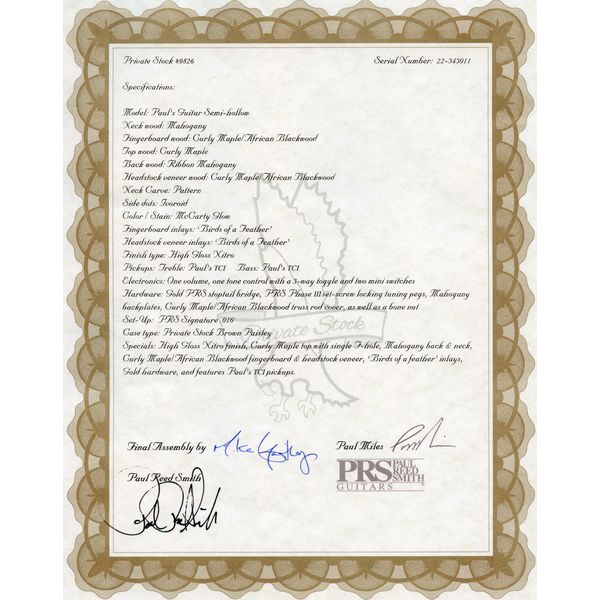 Private Stock #9826 Serial Number: 22-343011
Specifications:
Model: Paul's Guitar Semi-hollow
Neck wood: Mahogany
Fingerboard wood: Curly Maple/African Blackwood
Top wood: Curly Maple
Back wood: Ribbon Mahogany
Headstock veneer wood: Curly Maple/African Blackwood
Neck Carve: Pattern
Side dots: Ivoroid
Color / Stain: McCarty Glow
Fingerboard inlays: 'Birds of a Feather'
Headstock veneer inlays: 'Birds of a Feather'
Finish type: High Gloss Nitro
Pickups: Treble: Paul's TCI Bass: Paul's TCI
Electronics: One volume, one tone control with a 3-way toggle and two mini switches
Hardware: Gold PRS stoptail bridge, PRS Phase III set-screw locking tuning pegs, Mahogany
backplates, Curly Maple/African Blackwood truss rod cover, as well as a bone nut
Set-Up: PRS Signature .010
Private Stock
Case type: Private Stock Brown Paisley
Specials: High Gloss Nitro finish, Curly Maple top with single F-hole, Mahogany back & neck,
Curly Maple/African Blackwood fingerboard & headstock veneer, 'Birds of a feather' inlays,
Gold hardware, and features Paul's TCI pickups.
Final Assembly by Mike
Paul Miles
Paul Reed Smith
PRS PAUL REED SMITH
GUITARS